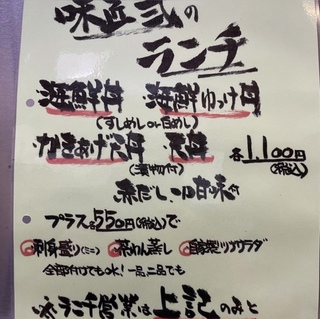 味匠弐の
ランチ
海鮮丼 海鮮ゆっけ丼
(すしめし or 白めし)
かきあげ天丼 天丼 各1,100円
(漬物付) (税込)
赤だし、一口甘味付
プラス各550円(税込)で
刺身盛り(ミニ) 茶わん蒸し 自家製ツナサラダ
全部付けてもOK!一品、二品でも
ランチ営業は上記のみと